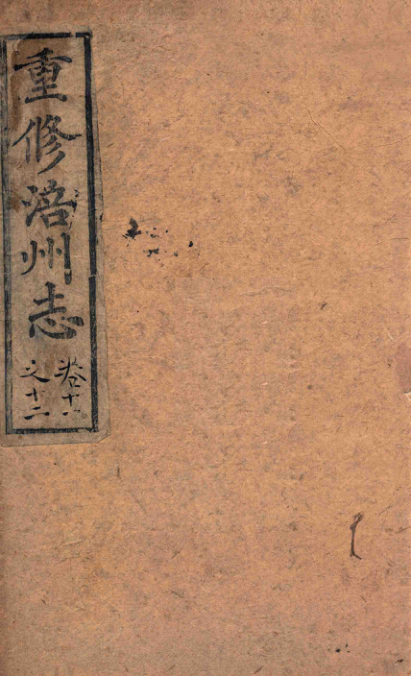 重修涪州志
卷十一
之十二